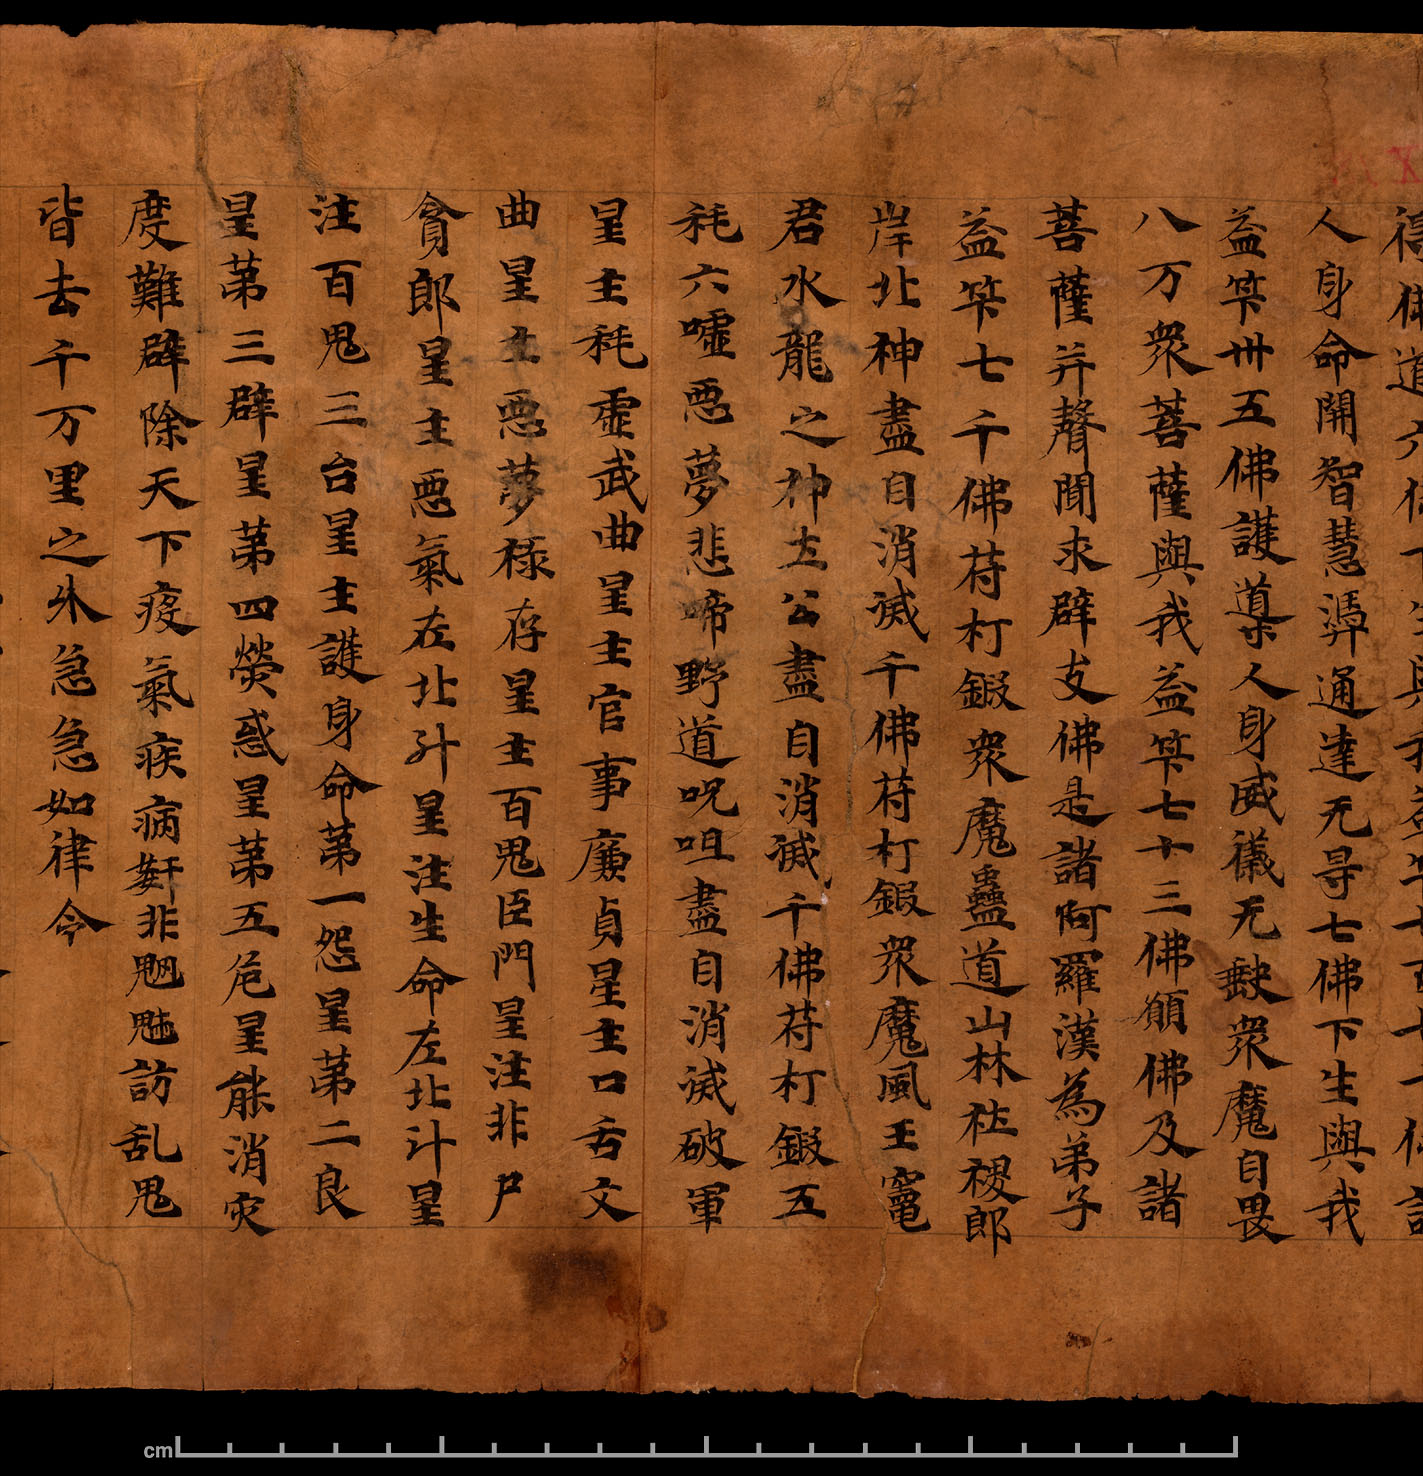 人身命開智慧馮通達无㝵七佛下生與我
益筭卌五佛護導人身威儀无缺衆魔自畏
八万衆菩薩與我益筭七十三佛願佛及諸
菩薩并聲聞求辟支佛是諸阿羅漢為弟子
益筭七千佛苻打鍜衆魔蠱道山林社稷郎
岸北神盡自消滅千佛苻打鍜衆魔風王竈
君水龍之神土公盡自消滅千佛苻打鍜五
秏六嘘惡夢悲啼野道呪咀盡自消滅破軍
星主秏虛武曲星主官事廉貞星主口舌文
曲星主惡夢祿存星主百鬼臣門星注非尸
貪郎星主惡氣左北斗星注生命左北斗星
注百鬼三台星主護身命第一怨星第二良
星第三辟星第四熒惑星第五危星能消灾
度難辟除天下疫氣疾病姧非魍魅訪乱鬼
皆去千万里之外急急如律令